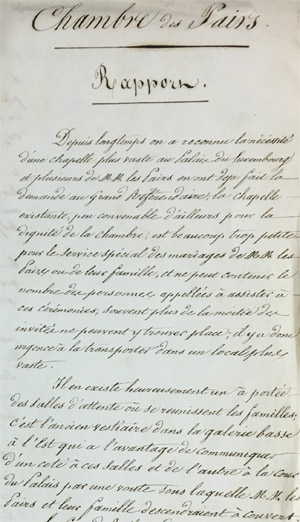 Chambre des Pairs.
Rapport.
Depuis longtemps on a reconnu la nécessité
d'une chapelle plus vaste au Palais du Luxembourg
et plusieurs de M.M. les Pairs en ont déjà fait la
demande au Grand Référendaire, la chapelle
existante, peu convenable d'ailleurs pour la
dignité de la chambre, est beaucoup trop petite
pour le service spécial des mariages de M.M. les
Pairs ou de leur famille, et ne peut contenir le
nombre des personnes appellées à assister à
ces cérémonies; souvent plus de la moitié des
invités ne peuvent y trouver place; il y a donc
urgence à la transporter dans un local plus
vaste.
Il en existe heureusement un à portée
des salles d'attente où se reunissent les familles;
c'est l'ancien vestiaire dans la galerie basse
à l'Est qui a l'avantage de communiquer
d'un coté à ces salles et de l'autre à la cour
du Palais par une voute sous laquelle M.M. les
Pairs et leur famille descendraient à couvert